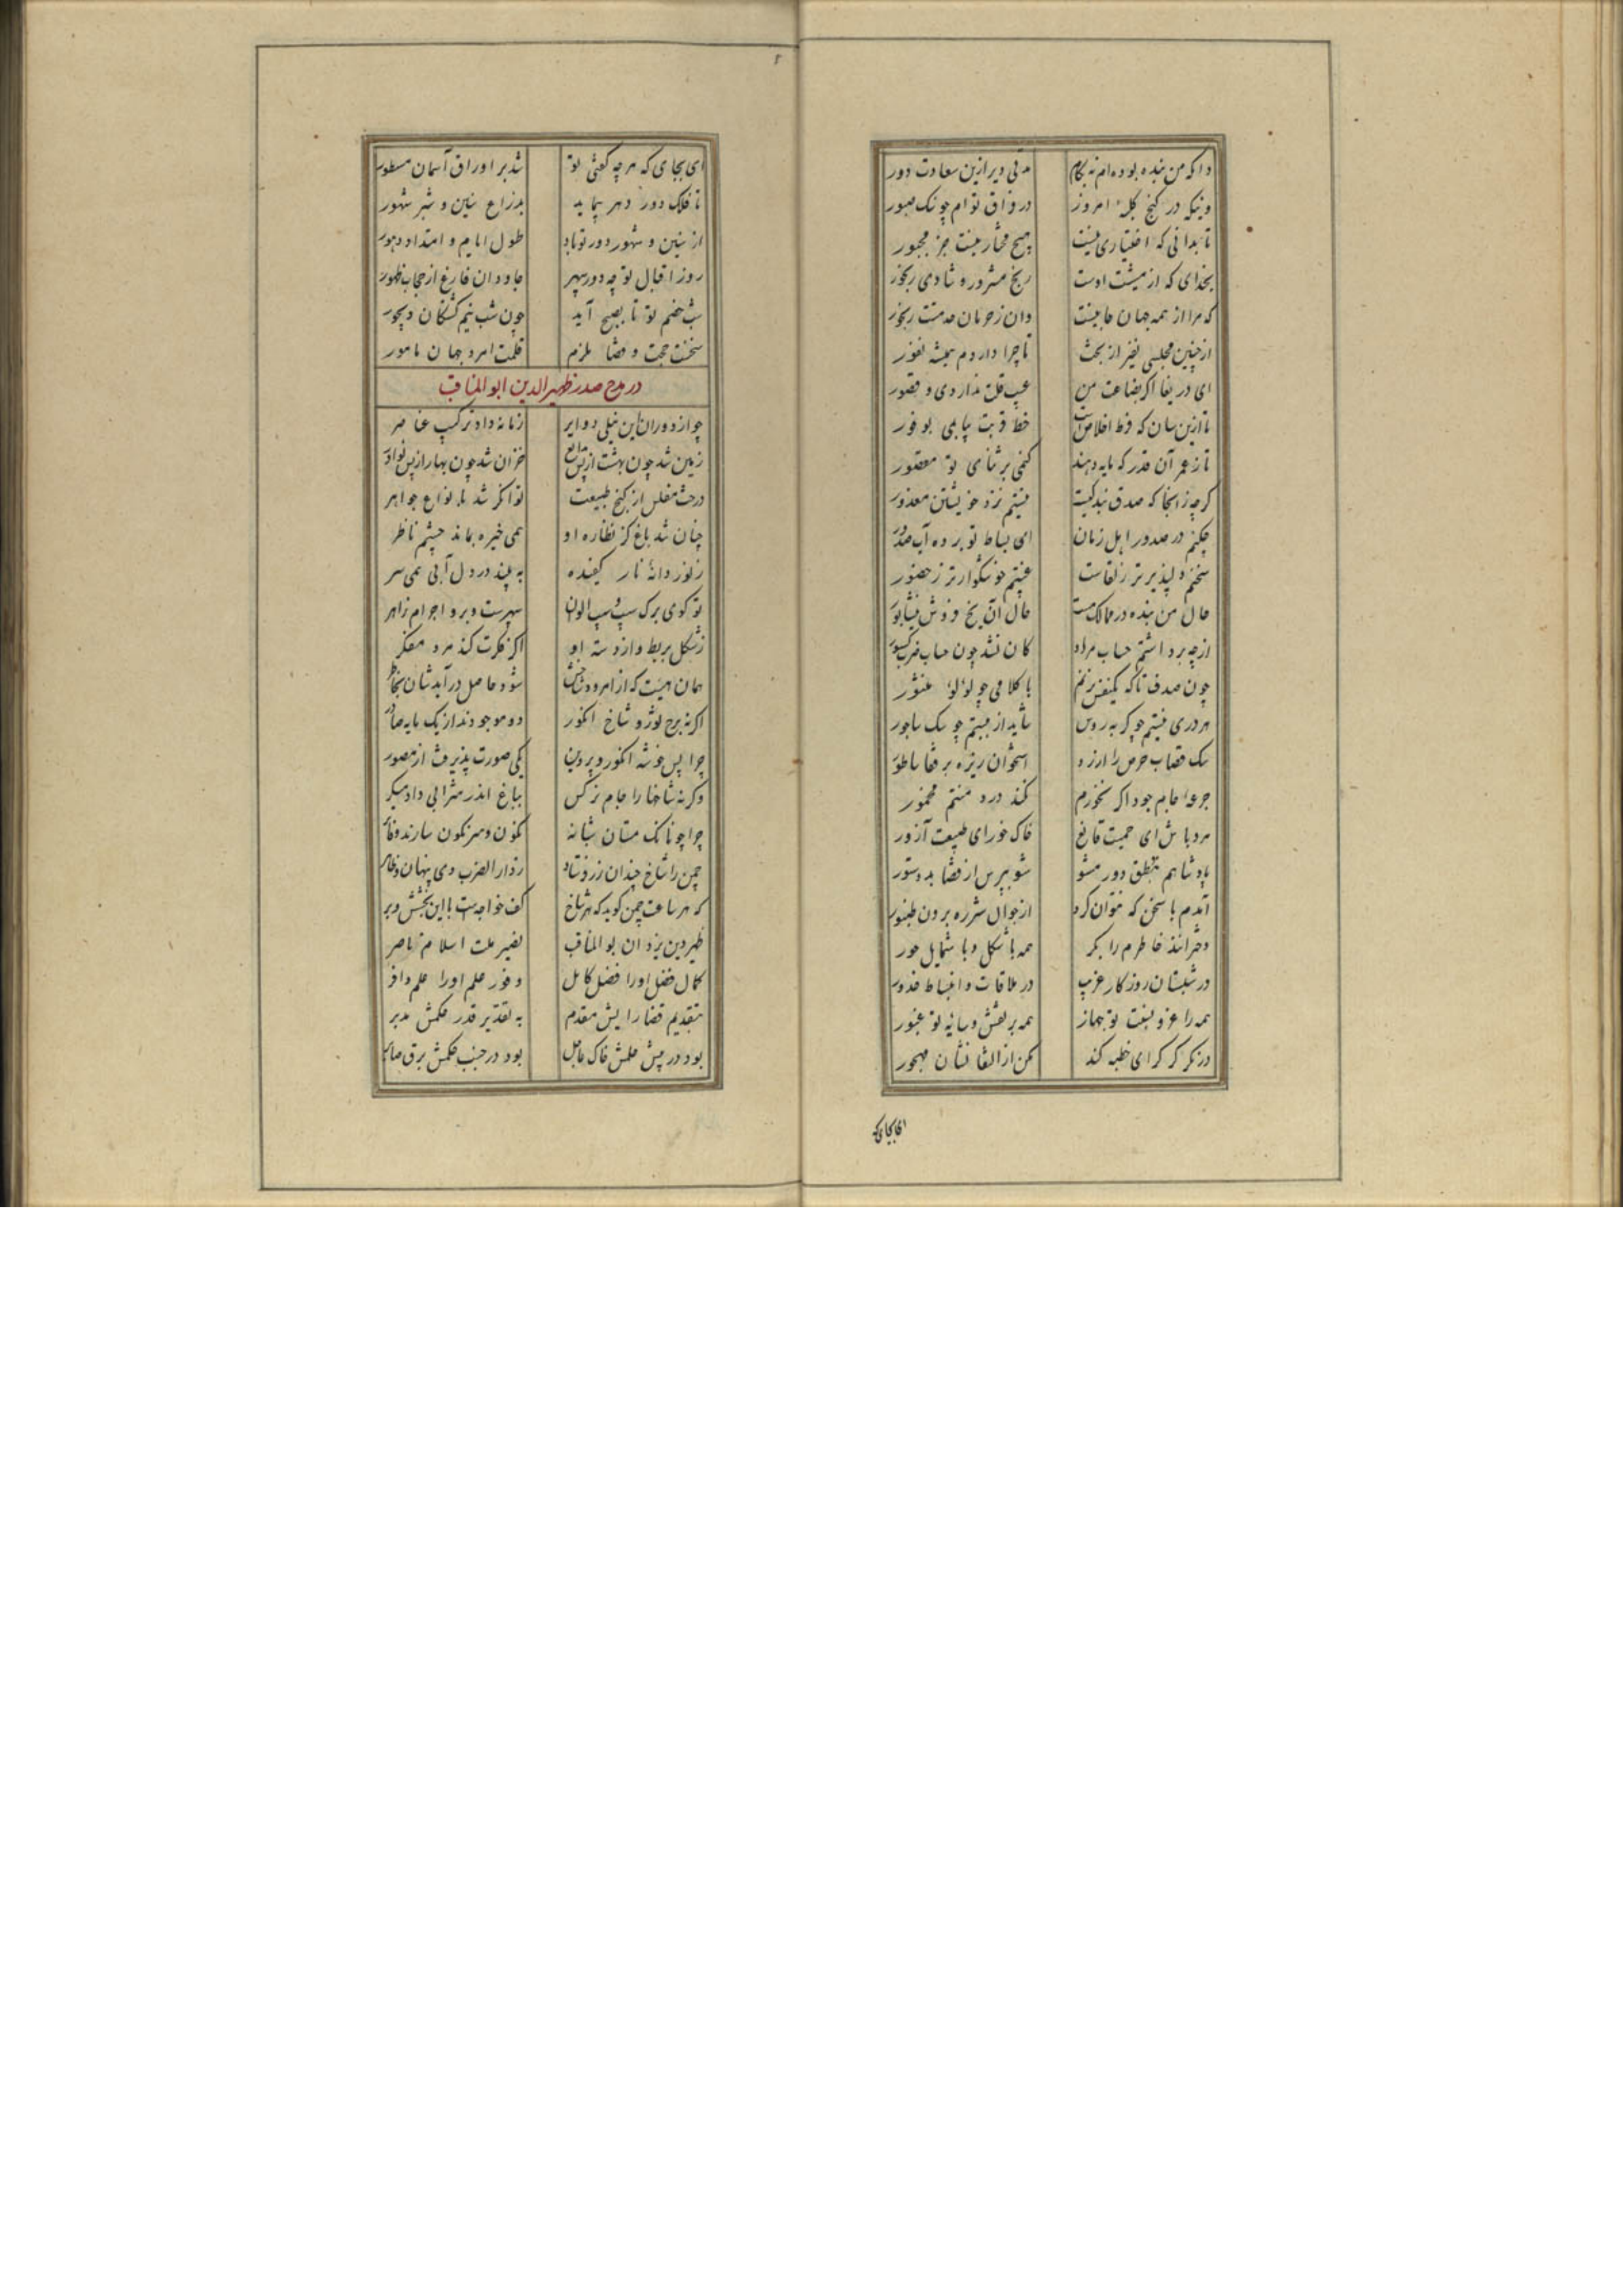 وا که من بنده بوده ام نه بکام مدتی دیر ازین سعادت دور
وینکه در کنج کلبه امروز در فراق توام چو سنگ صبور
تا بدانی که اختیاری نیست هیچ مختار نیست جز مجبور
بخدای که از مشیت اوست رنج مسرور و شادی رنجور
که مرا از همه جهان جانیست وان ز حرمان خدمتت رنجور
از چنین مجلسی نفیر از بخت تا چرا داردم همیشه نفور
ای دریغا اگر بضاعت من عیب قلت نداردی و قصور
تا ازین سان که فرط اخلاص است حظ قربت بیابمی بوفور
تا ز عمر آن قدر که مایه دهند کنمی بر ثنای تو مقصور
گرچه زانجا که صدق بندگیست نیستم نزد خویشتن معذور
چکنم در صدور اهل زمان ای بساط تو برده آب صدور
سخنم دلپذیرتر ز لقاست غیبتم خوشگوارتر ز حضور
حال من بنده در ممالک هست حال آن یخ فروش نیشابور
از چه برداشتم حساب مراد کان نشد چون حساب ضرب کسور
چون صدف تا که یکنفس نزنم با کلامی چو لؤلؤ منثور
هر دری نیستم چو گربه روس شاید از نیستم چو سگ ساجور
سگ قصاب حرص را ارزد استخوان ریزه بر قفا ساطور
جرعه جام جود اگر نخورم نکند درد منتم مخمور
مرد باش ای حمیت قانع خاک خور ای طبیعت آزور
پادشاهم بنطق دور مشو شو بپرس از قضا به دستور
آمدم با سخن که نتوان کرد از جوال شره برون طنبور
دخترانند خاطرم را بکر همه با شکل و با شمایل حور
در شبستان روزگار غریب در ملاقات و انبساط غدور
همه را عز و نعت تو جهاز همه بر نقش و سایه تو غیور
در نگر گر کرای خطبه کند مکن از التفاتشان مهجور
ای بجای که
ای بجای که هر چه گفتی تو شد بر اوراق آسمان مسطور
تا فلک دور دهر پیماید بذراع سنین و شبر شهور
از سنین و شهور دور تو باد طول ایام و امتداد دهور
روز اقبال تو چو دور سپهر جاودان فارغ از حجاب ظهور
شب خصم تو تا بصبح آید چون شب نیم کشتگان دیجور
سخنت حجت و قضا ملزم قلمت امر و جهان مامور
در مدح صدر ظهیرالدین ابوالمناقب
چو از دوران این نیلی دوایر زمانه داد ترکیب عناصر
زمین شد چون بهشت از بس بدایع خزان شد چون بهار از بس نوادر
درخت مفلس از گنج طبیعت توانگر شد بانواع جواهر
چنان شد باغ کز نظاره او همی خیره بماند چشم ناظر
ز نور دانه نار کفیده به بیند در دل آبی همی سر
تو گوی برگ سیب و سیب الوان سپهرست و برو اجرام زاهر
ز شکل بربط و از دسته او اگر فکرت کند مرد مفکر
همان هیئت که از امرود و شاخش شود حاصل در آید شان بخاطر
اگر نه برج ثور و شاخ انگور دو موجودند از یک مایه صادر
چرا پس خوشه انگور و پروین یکی صورت پذیرفت از مصور
و گر نه شاخها را جام نرگس بباغ اندر شرابی داد مسکر
چرا چونانک مستان شبانه نگون و سرنگون سارند و فاتر
چمن را شاخ چندان زر فرستاد ز دارالضرب دی پنهان و ظاهر
که هر ساعت چمن گوید که هر شاخ کف خواجه است با این بخشش و بر
ظهیر دین یزدان بوالمناقب نصیر ملت اسلام ناصر
کمال فضل او را فضل کامل وفور علم او را علم وافر
بتقدیم قضا رایش مقدم به تقدیر قدر حکمش مدبر
بود در پیش حلمش خاک عاجل بود در جنب حکمش برق صابر